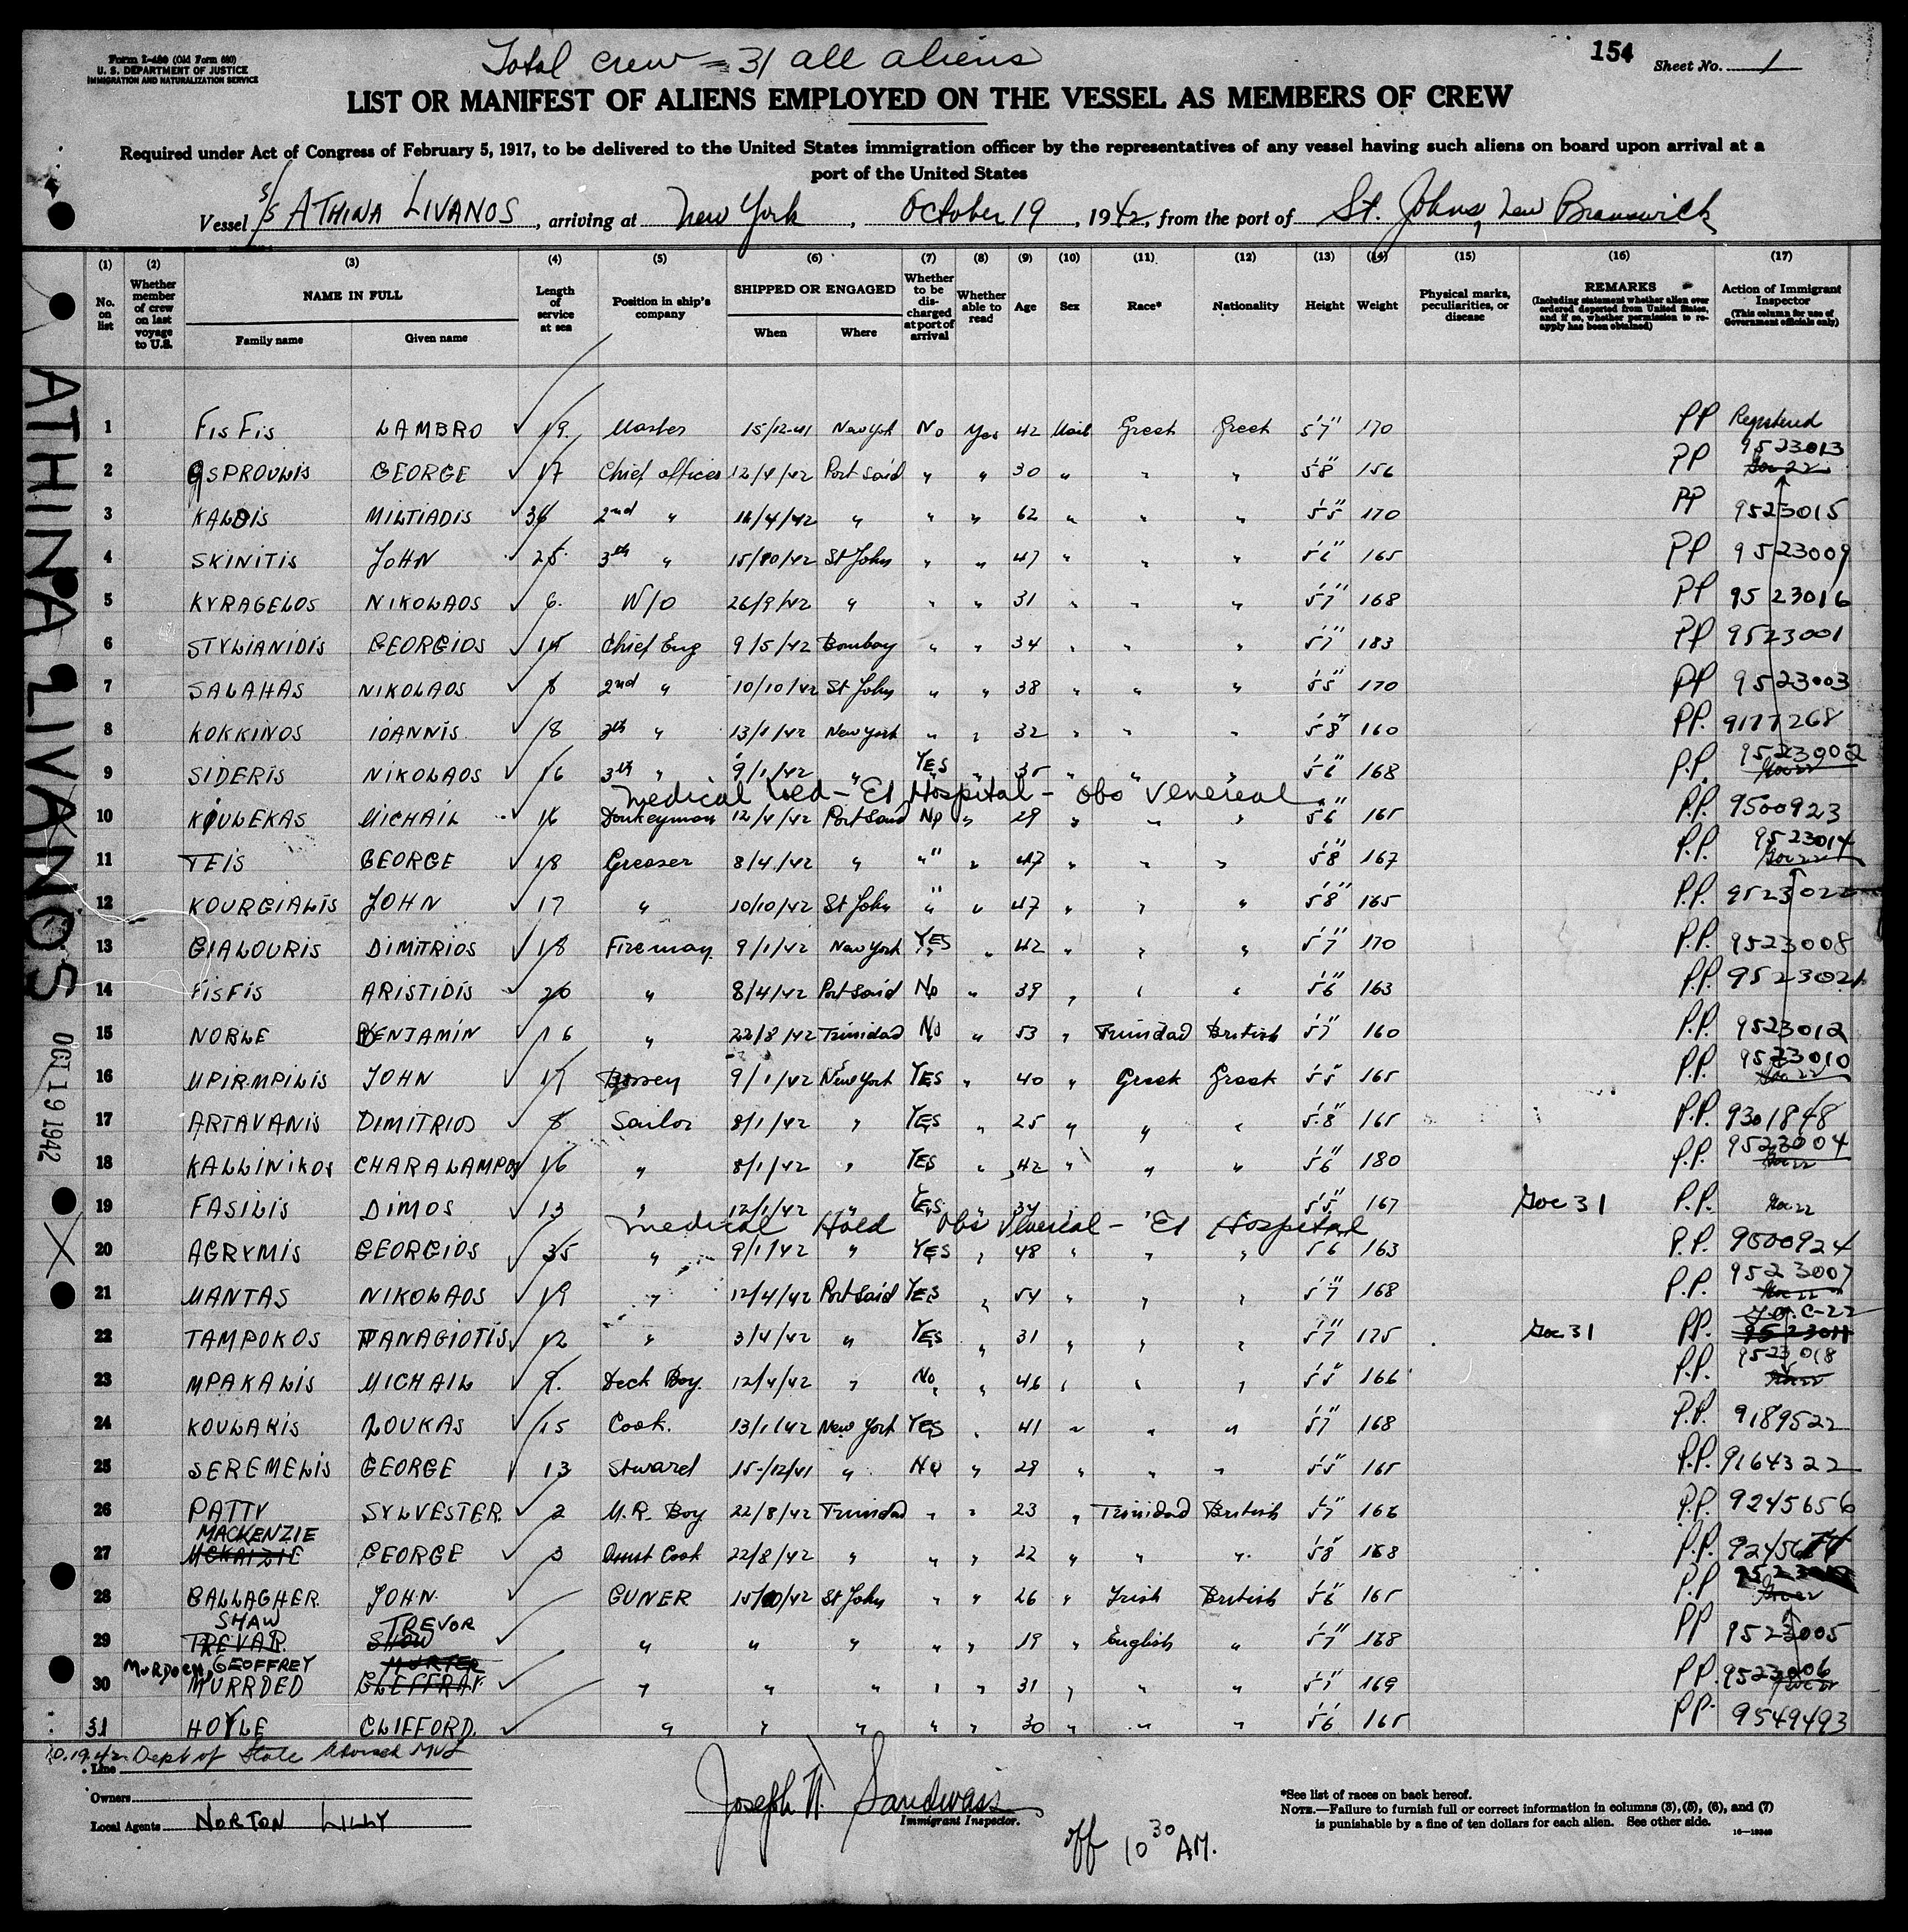 Form I-480 (Old Form 680)
U. S. DEPARTMENT OF JUSTICE
IMMIGRATION AND NATURALIZATION SERVICE
Total crew = 31 all aliens
154 Sheet No. 1
LIST OR MANIFEST OF ALIENS EMPLOYED ON THE VESSEL AS MEMBERS OF CREW
Required under Act of Congress of February 5, 1917, to be delivered to the United States immigration officer by the representatives of any vessel having such aliens on board upon arrival at a
port of the United States
Vessel S/S ATHINA LIVANOS, arriving at New York, October 19, 1942, from the port of St. Johns, New Brunswick
(1) (2) (3) (4) (5) (6) (7) (8) (9) (10) (11) (12) (13) (14) (15) (16) (17)
No. on list
Whether member of crew on last voyage to U.S.
NAME IN FULL
Family name Given name
Length of service at sea
Position in ship's company
SHIPPED OR ENGAGED
When Where
Whether to be discharged at port of arrival
Whether able to read
Age Sex Race* Nationality Height Weight
Physical marks, peculiarities, or disease
REMARKS
(Including statement whether alien ever ordered deported from United States, and if so, whether permission to reapply has been obtained)
Action of Immigrant Inspector
(This column for use of Government officials only)
ATHINA LIVANOS
OCT 19 1942
1 FISFIS LAMBRO 19 Master 15/12-41 New York No Yes 42 Mail Greek Greek 5'7" 170 PP Registered
2 GSPROULIS GEORGE 17 Chief officer 12/4/42 Port Said " " 30 " " " 5'8" 156 PP 9523013
3 KALDIS MILTIADIS 36 2nd " 16/4/42 " " " 62 " " " 5'5" 170 PP 9523015
4 SKINITIS JOHN 25 3th " 15/10/42 St John " " 47 " " " 5'6" 165 PP 9523009
5 KYRAGELOS NIKOLAOS 6 W/O 26/9/42 " " " 31 " " " 5'7" 168 PP 9523016
6 STYLIANIDIS GEORGIOS 14 Chief Eng 9/5/42 Bombay " " 34 " " " 5'7" 183 PP 9523001
7 SALAHAS NIKOLAOS 8 2nd " 10/10/42 St John " " 38 " " " 5'5" 170 PP 9523003
8 KOKKINOS IOANNIS 18 3th " 13/1/42 New York " " 32 " " " 5'8" 160 P.P. 9177268
9 SIDERIS NIKOLAOS 16 3th " 9/1/42 " YES " 35 " " " 5'6" 168 P.P. 9523002
Medical Hold - EI Hospital - obs venereal
10 KIULEKAS MICHAIL 16 Donkeyman 12/4/42 Port Said No " 29 " " " 5'6" 165 P.P. 9500923
11 TEIS GEORGE 18 Greaser 8/4/42 " " " 47 " " " 5'8" 167 P.P. 9523014
12 KOURGIALIS JOHN 17 " 10/10/42 St John " " 47 " " " 5'8" 165 P.P. 9523022
13 GIALOURIS DIMITRIOS 18 Fireman 9/1/42 New York YES " 42 " " " 5'7" 170 P.P. 9523008
14 FISFIS ARISTIDIS 20 " 8/4/42 Port Said No " 39 " " " 5'6" 163 P.P. 9523021
15 NOBLE BENJAMIN 16 " 22/8/42 Trinidad No " 53 " Trinidad British 5'7" 160 P.P. 9523012
16 MPIRMPILIS JOHN 17 9/1/42 New York YES " 40 " Greek Greek 5'5" 165 P.P. 9523010
17 ARTAVANIS DIMITRIOS 8 Sailor 8/1/42 " YES " 25 " " " 5'8" 165 P.P. 9301848
18 KALLINIKOS CHARALAMPOS 16 " 8/1/42 " YES " 42 " " " 5'6" 180 P.P. 9523004
19 FASILIS DIMOS 13 " 12/1/42 " YES " 34 " " " 5'5" 167 Doc 31 P.P.
Medical Hold obs Venereal - EI Hospital
20 AGRYMIS GEORGIOS 35 " 9/1/42 " YES " 48 " " " 5'6" 163 P.P. 9500924
21 MANTAS NIKOLAOS 19 " 12/4/42 Port Said YES " 54 " " " 5'7" 168 P.P. 9523007
22 TAMPOKOS PANAGIOTIS 12 " 3/4/42 " YES " 31 " " " 5'7" 175 Doc 31 P.P. 9523011
23 MPAKALIS MICHAIL 9. Deck Boy. 12/4/42 " No " 46 " " " 5'5" 166 P.P. 9523018
24 KOULAKIS LOUKAS 15 Cook. 13/1/42 New York YES " 41 " " " 5'7" 168 P.P. 9189522
25 SEREMELIS GEORGE 13 Stward 15-/12/41 " No " 29 " " " 5'5" 165 P.P. 9164322
26 PATTY SYLVESTER 2 M.R. Boy 22/8/42 Trinidad " " 23 " Trinidad British 5'7" 166 P.P. 9245656
MACKENZIE
27 MCKAIZIE GEORGE 3 Asist Cook 22/8/42 " " " 22 " " " 5'8" 168 P.P.
28 GALLAGHER JOHN GUNER 15/10/42 St John " " 26 " Irish British 5'6" 165 P.P.
SHAW TREVOR
29 TREVAR SHOW " " " " " 19 " English " 5'7" 168 PP 9523005
MURDOCH, GEOFFREY MURTER
30 MURRDED GLEFFRAY " " " " " 31 " " " 5'7" 169 PP 9523006
31 HOYLE CLIFFORD " " " " " 30 " " " 5'6" 165 PP 9549493
10.19.42 Dept of State Advised MVL
Line
Owners
Local Agents NORTON LILLY
Immigrant Inspector.
off 10 30 AM.
*See list of races on back hereof.
NOTE.—Failure to furnish full or correct information in columns (3), (5), (6), and (7)
is punishable by a fine of ten dollars for each alien. See other side.